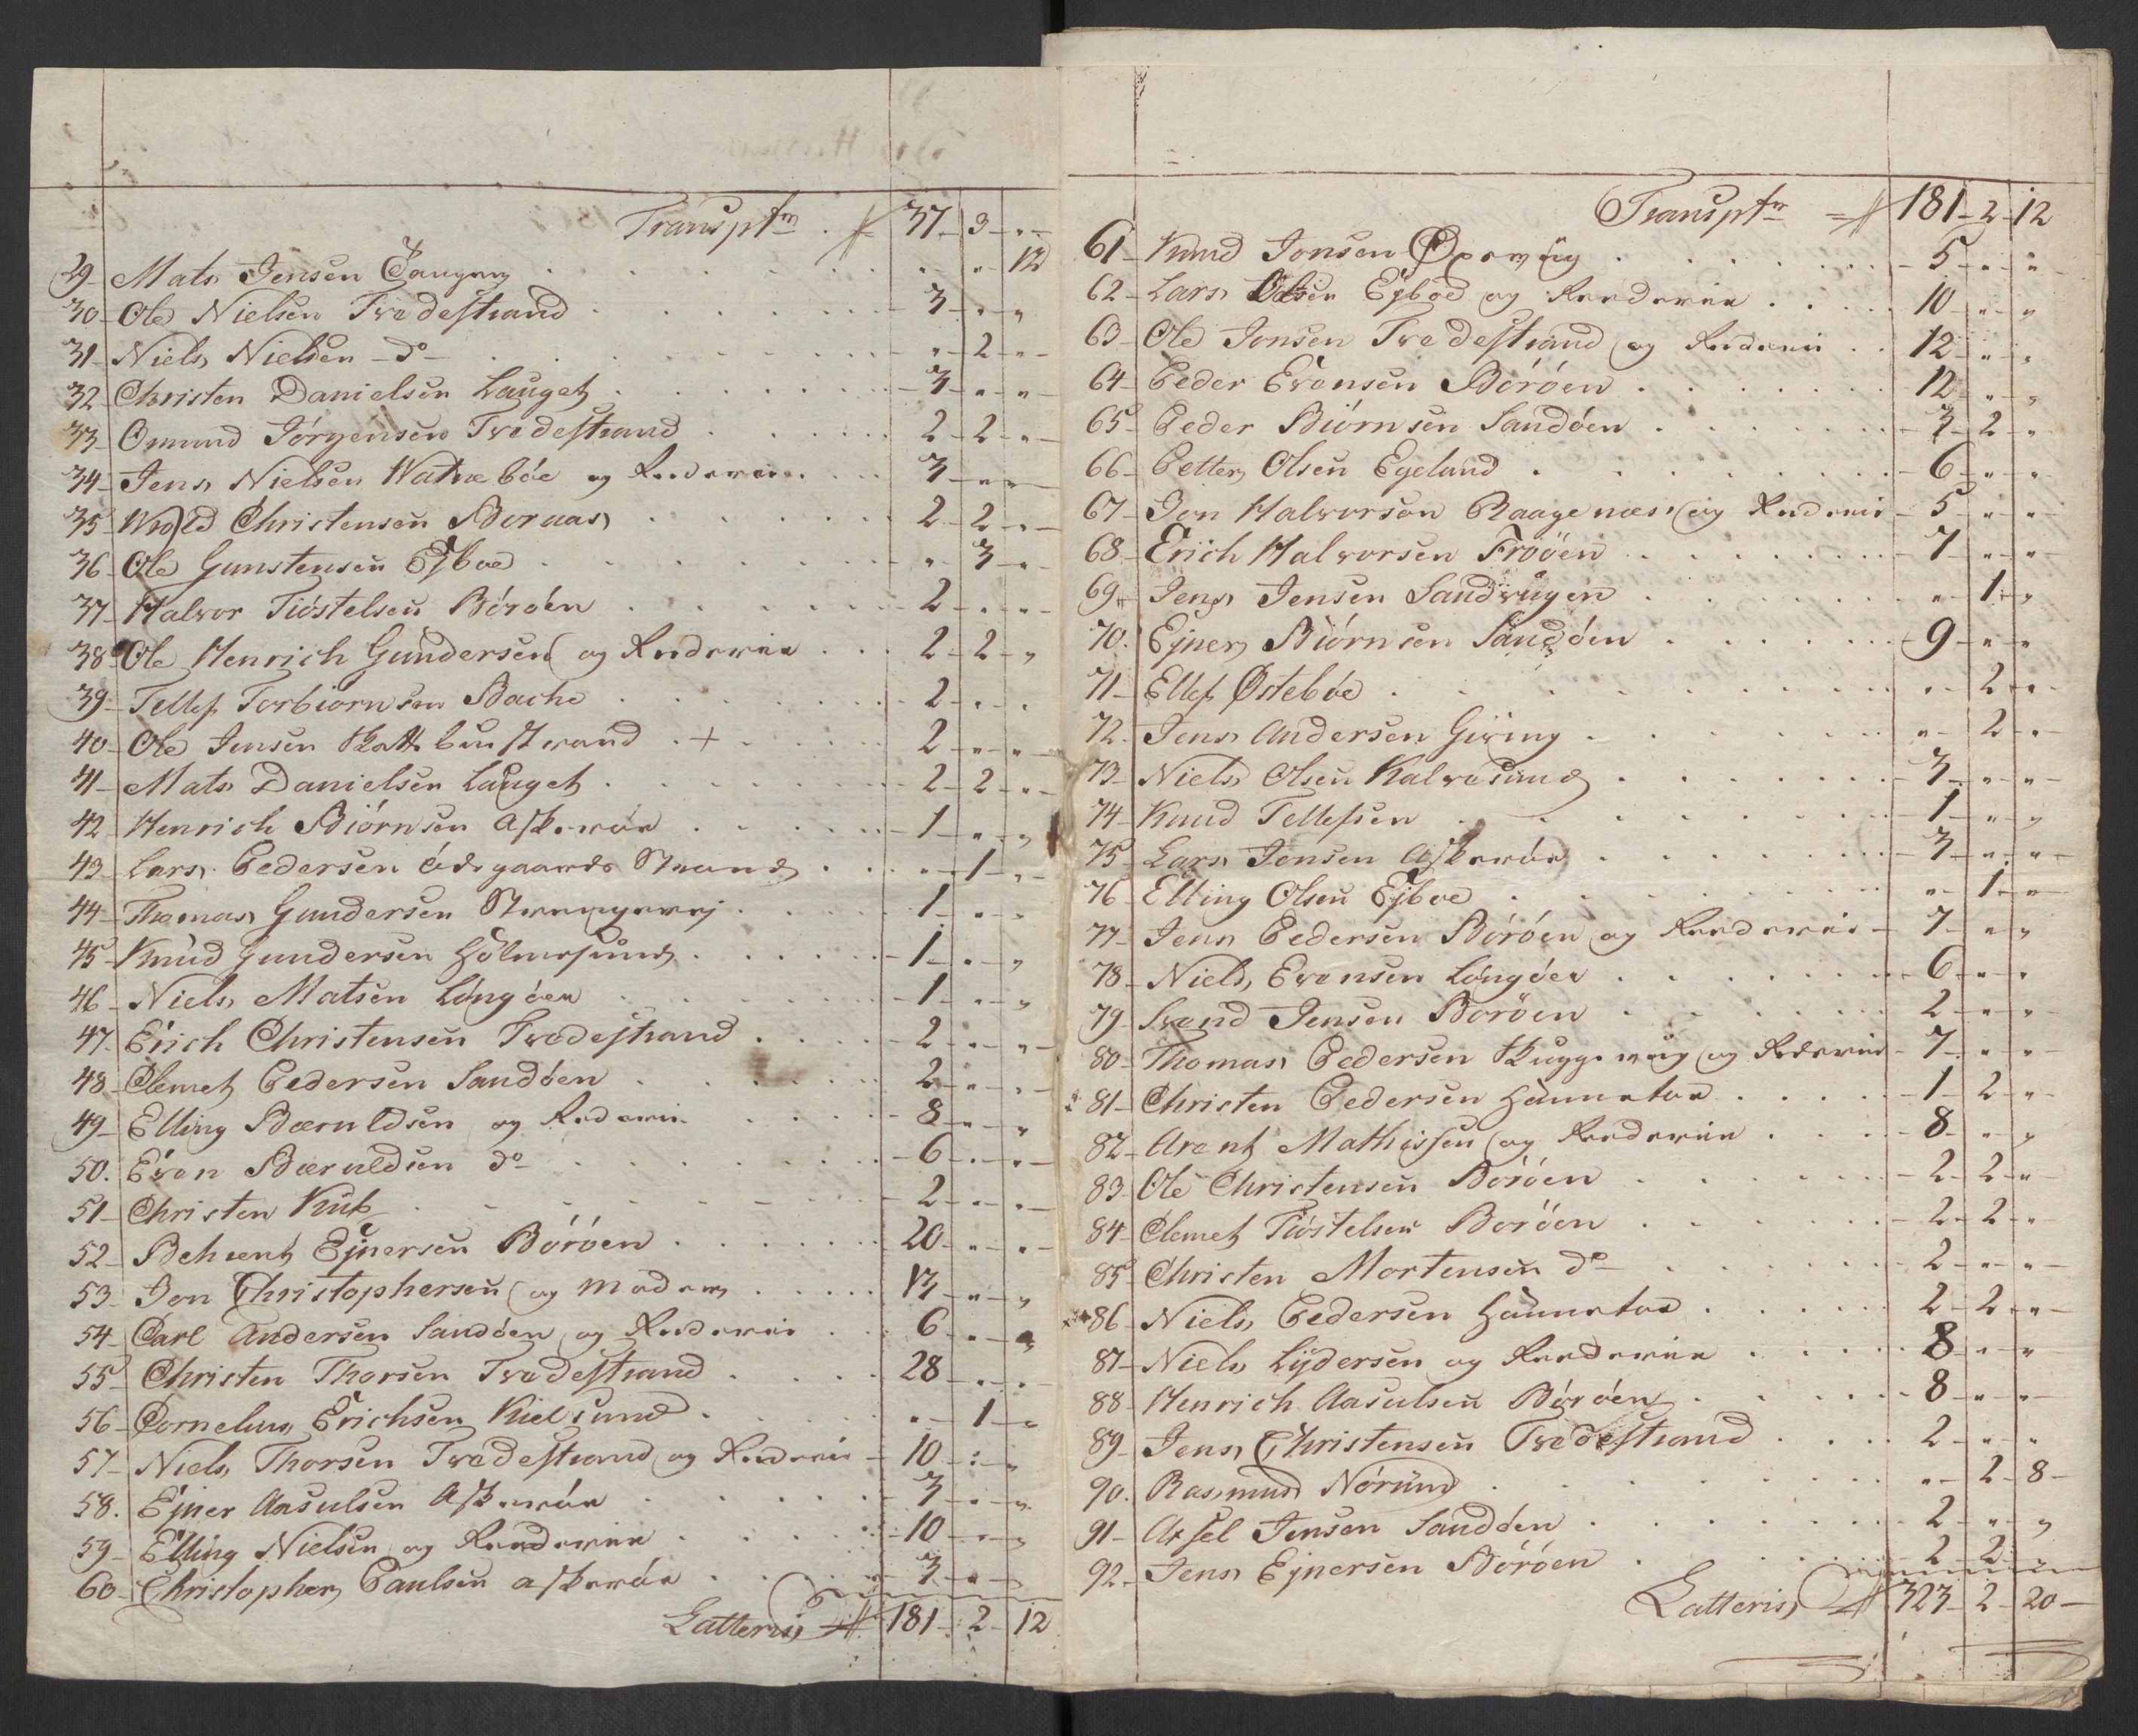 Transptr # 37 - 3 - "
29 - Mats Jensen Tangen " - " - 12
30 - Ole Nielsen Tvedestrand 3 - " - "
31 - Niels Nielsen do " - 2 - "
32 Christen Danielsen Lauget 3 - " - "
33 - Omund Jörgensen Tvedestrand 2 - 2 - "
34 - Jens Nielsen Watnebóe og Rederie 3 - " - "
35 - Wrold Christensen Bornas 2 - 2 - "
36 - Ole Gunstensen Ejboe " - 3 - "
37 - Halvor Tióstelsen Bóróen 2 - " - "
38 - Ole Henrich Gundersen og Rederie 2 - 2 - "
39 - Tellef Torbiornsen Bache 2 - " - "
40 - Ole Jensen Skatbuestrand + 2 - " - "
41 - Mats Danielsen Lauget 2 - 2 - "
42 - Henrich Biórnsen Askeróe 1 - " - "
43 - Lars Pedersen ódegaards Strand " - 1 - "
44 - Thomas Gundersen 1 - " - "
45 - Knud Gundersen Holmesund 1 - " - "
46 - Niels Matsen Lóngóen 1 - " - "
47 - Erich Christensen Tvedestrand 2 - " - "
48 - Clemet Pedersen Sandóen 2 - " - "
49 - Elling Bæruldsen og Rederie 8 - " - "
50. Even Bæruldsen do 6 - " - "
51 - Christen Kub 2 - " - "
52 - Behrent Ejnersen Bóróen 20 - " - "
53 - Jon Christophersen og Moder 13 - " - "
54 - Carl Andersen Sandóen og Rederie 6 - " - "
55 - Christen Thorsen Tvedestrand 28 - " - "
56 - Cornelius Erichsen Kielsund " - 1 - "
57 - Niels Thorsen Tvedestrand og Rederie 10 - " - "
58. Ejner Aasulsen Askeróe 3 - " - "
59 - Elling Nielsen og Reederie 10 - " - "
60 - Christopher Paulsen askeróe 3 - " - "
Latteris # 181 - 2 - 12
Transptr # 181 - 2 - 12
61 - Knud Jonsen Oxevüg 5 - " - "
62 - Lars Olsen Ejboe og Reederie 10 - " - "
63 - Ole Jonsen Tvedestrand og Rederie 12 - " - "
64 - Peder Evensen Bóróen 12 - " - "
65 - Peder Biórnsen Sandóen 3 - 2 - "
66 - Petter Olsen Egeland 6 - " - "
67 - Jon Halvorsen Raagenæs og Rederie 5 - " - "
68 - Erich Halvorsen Fróóen 7 - " - "
69 - Jens Jensen Sandvügen " - 1 - "
70. Ejner Biórnsen Sandóen 9 - " - "
71 - Ellef Østebóe " - 2 - "
72 - Jens Andersen Giving " - 2 - "
73 - Niels Olsen Kalvesund 3 - " - "
74 - Knud Tellefsen 1 - " - "
75 - Lars Jensen Askeróe 3 - " - "
76 - Elling Olsen Ejboe " - 1 - "
77 - Jens Pedersen Bóróen og Reederie 7 - " - "
78 - Niels Evensen Lóngóen 6 - " - "
79 - Svend Jensen Boróen 2 - " - "
80 - Thomas Pedersen Skuggevüg og Rederie 7 - " - "
81 - Christen Pedersen Hannetoe 1 - 2 - "
82 - Arent Mathissen og Reederie 8 - " - "
83 - Ole Christensen Bóróen 2 - 2 - "
84 - Clemet Tióstelsen Boróen 2 - 2 - "
85 - Christen Mortensen do 2 - " - "
86 - Niels Pedersen Hannetoe 2 - 2 - "
87 - Niels Lydersen og Reederie 8 - " - "
88 - Henrich Aasulsen Bóróen 8 - " - "
89 - Jens Christensen Tvedestrand 2 - " - "
90. Rasmus Nórund " - 2 - 8 -
91 - Axsel Jensen Sandóen 2 - " - "
92 - Jens Ejnersen Bóróen 2 - 2 - "
Latteris # 323 - 2 - 20 -